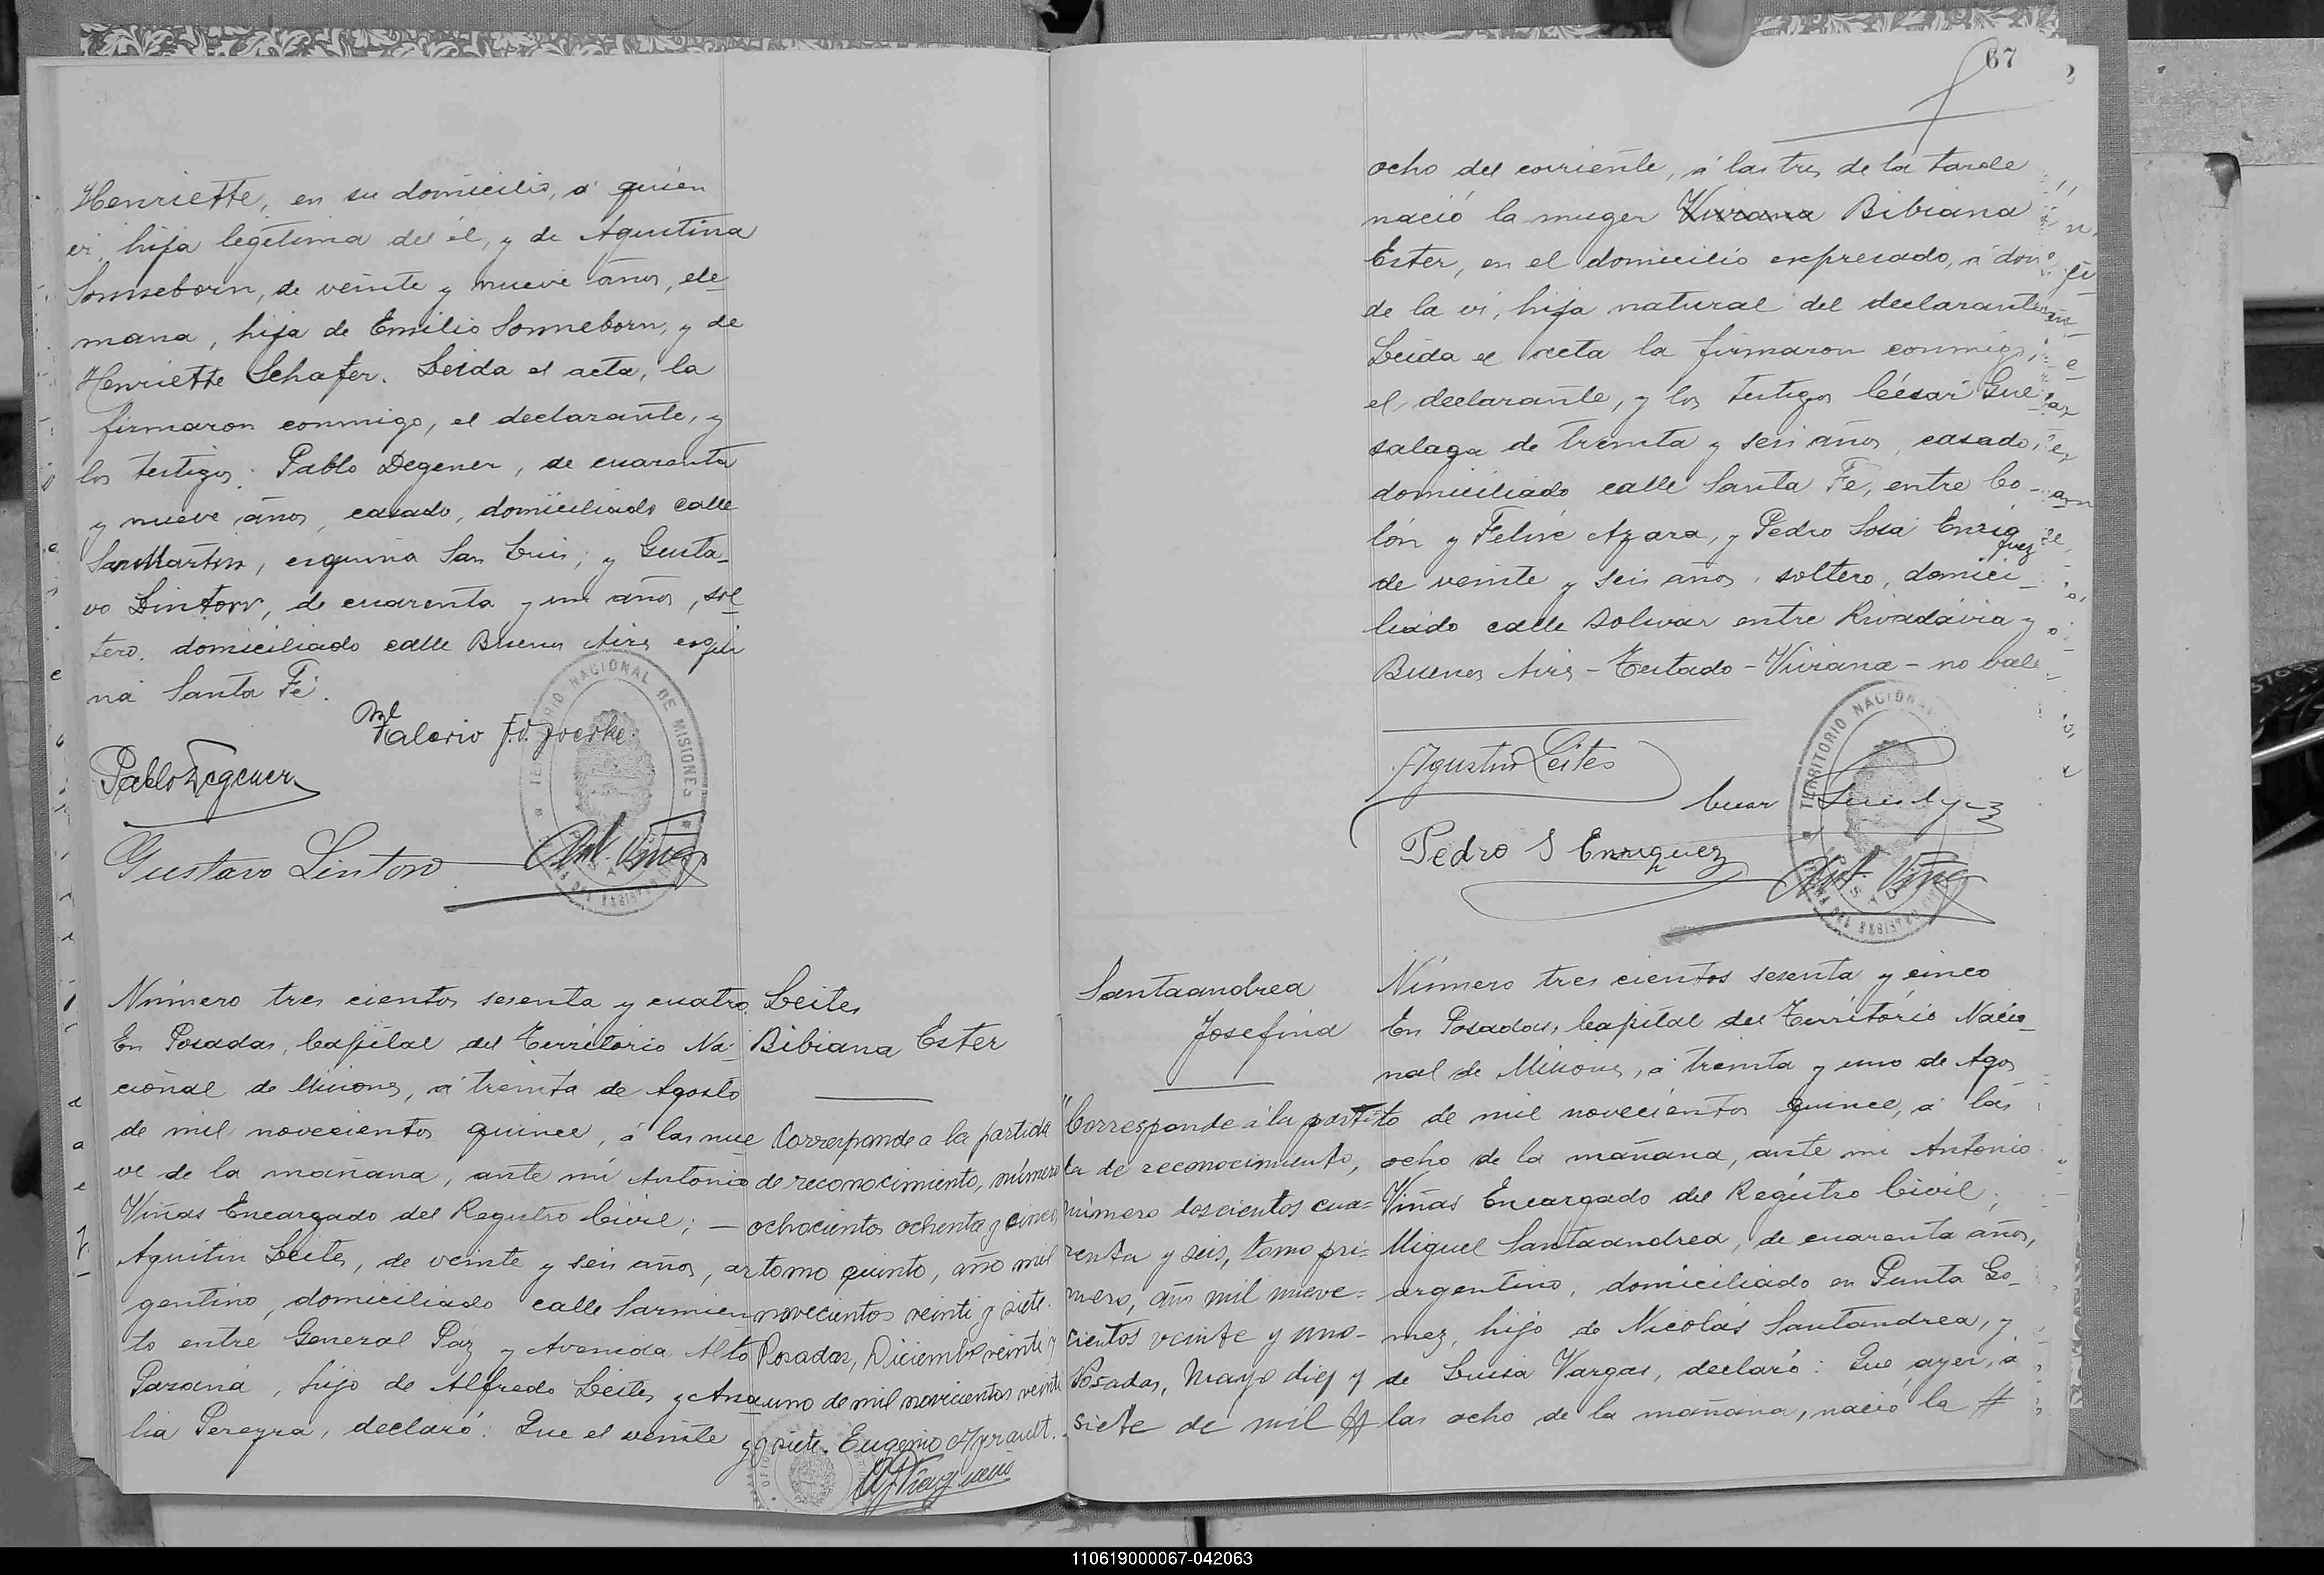 Henriette, en su domicilio, á quien
vi, hija legítima del él, y de Agustina
Sonneborn, de veinte y nueve años, ale
mana, hija de Emilio Sonneborn, y de
Henriette Schafer. Leida el acta, la
firmaron conmigo, el declarante, y
los testigos: Pablo Degener, de cuarenta
y nueve años, casado, domiciliado calle
San Martin, esquina San Luis; y Gusta-
vo Lintow, de cuarenta y un años, sol
tero, domiciliado calle Buenos Aires esqui
na Santa Fé.
Pablo Degener
Gustavo Lintow
Ant. Viñas
TERRITORIO NACIONAL DE MISIONES
Número tres cientos sesenta y cuatro
En Posadas, Capital del Territorio Na-
cional de Misiones, á treinta de Agosto
de mil novecientos quince, á las nue
ve de la mañana, ante mi Antonio
Viñas Encargado del Registro Civil; —
Agustin Leites, de veinte y seis años, ar
gentino, domiciliado calle Sarmien
to entre General Paz y Avenida Alto
Paraná, hijo de Alfredo Leites y Ama
lia Pereyra, declaró: Que el veinte y
Leites
Bibiana Ester
Corresponde a la partida
de reconocimiento, número
ochocientos ochenta y cinco,
tomo quinto, año mil
novecientos veinti y siete.
Posadas, Diciembre veinti y
uno de mil novecientos veinti
y siete. Eugenio Ayrault.
67
ocho del corriente, á las tres de la tarde
nació la muger Viviana Bibiana
Ester, en el domicilio expresado, á don
de la vi, hija natural del declarante
Leida el acta la firmaron conmigo,
el declarante, y los testigos César Gue
salaga de treinta y seis años, casado,
domiciliado calle Santa Fe, entre Co-
lón y Felix Azara, y Pedro Sosa Enriq
quez
de veinte y seis años, soltero, domici-
liado calle Bolivar entre Rivadavia y
Buenos Aires - Testado - Viviana - no vale
Agustin Leites
Pedro S Enriquez
Ant. Viñas
TERRITORIO NACIONAL
Santaandrea
Josefina
"Corresponde á la parti
da de reconocimiento,
número doscientos cua=
renta y seis, tomo pri=
mero, año mil nueve=
cientos veinte y uno-
Posadas, Mayo diez y
siete de mil #
Número tres cientos sesenta y cinco
En Posadas, Capital del Territorio Nacio-
nal de Misiones, á treinta y uno de Agos
to de mil novecientos quince, á las
ocho de la mañana, ante mi Antonio
Viñas Encargado del Registro Civil;
Miguel Santaandrea, de cuarenta años,
argentino, domiciliado en Punta Go-
mez, hijo de Nicolás Santandrea, y
de Luisa Vargas, declaró: Que, ayer, á
las ocho de la mañana, nació la #
110619000067-042063